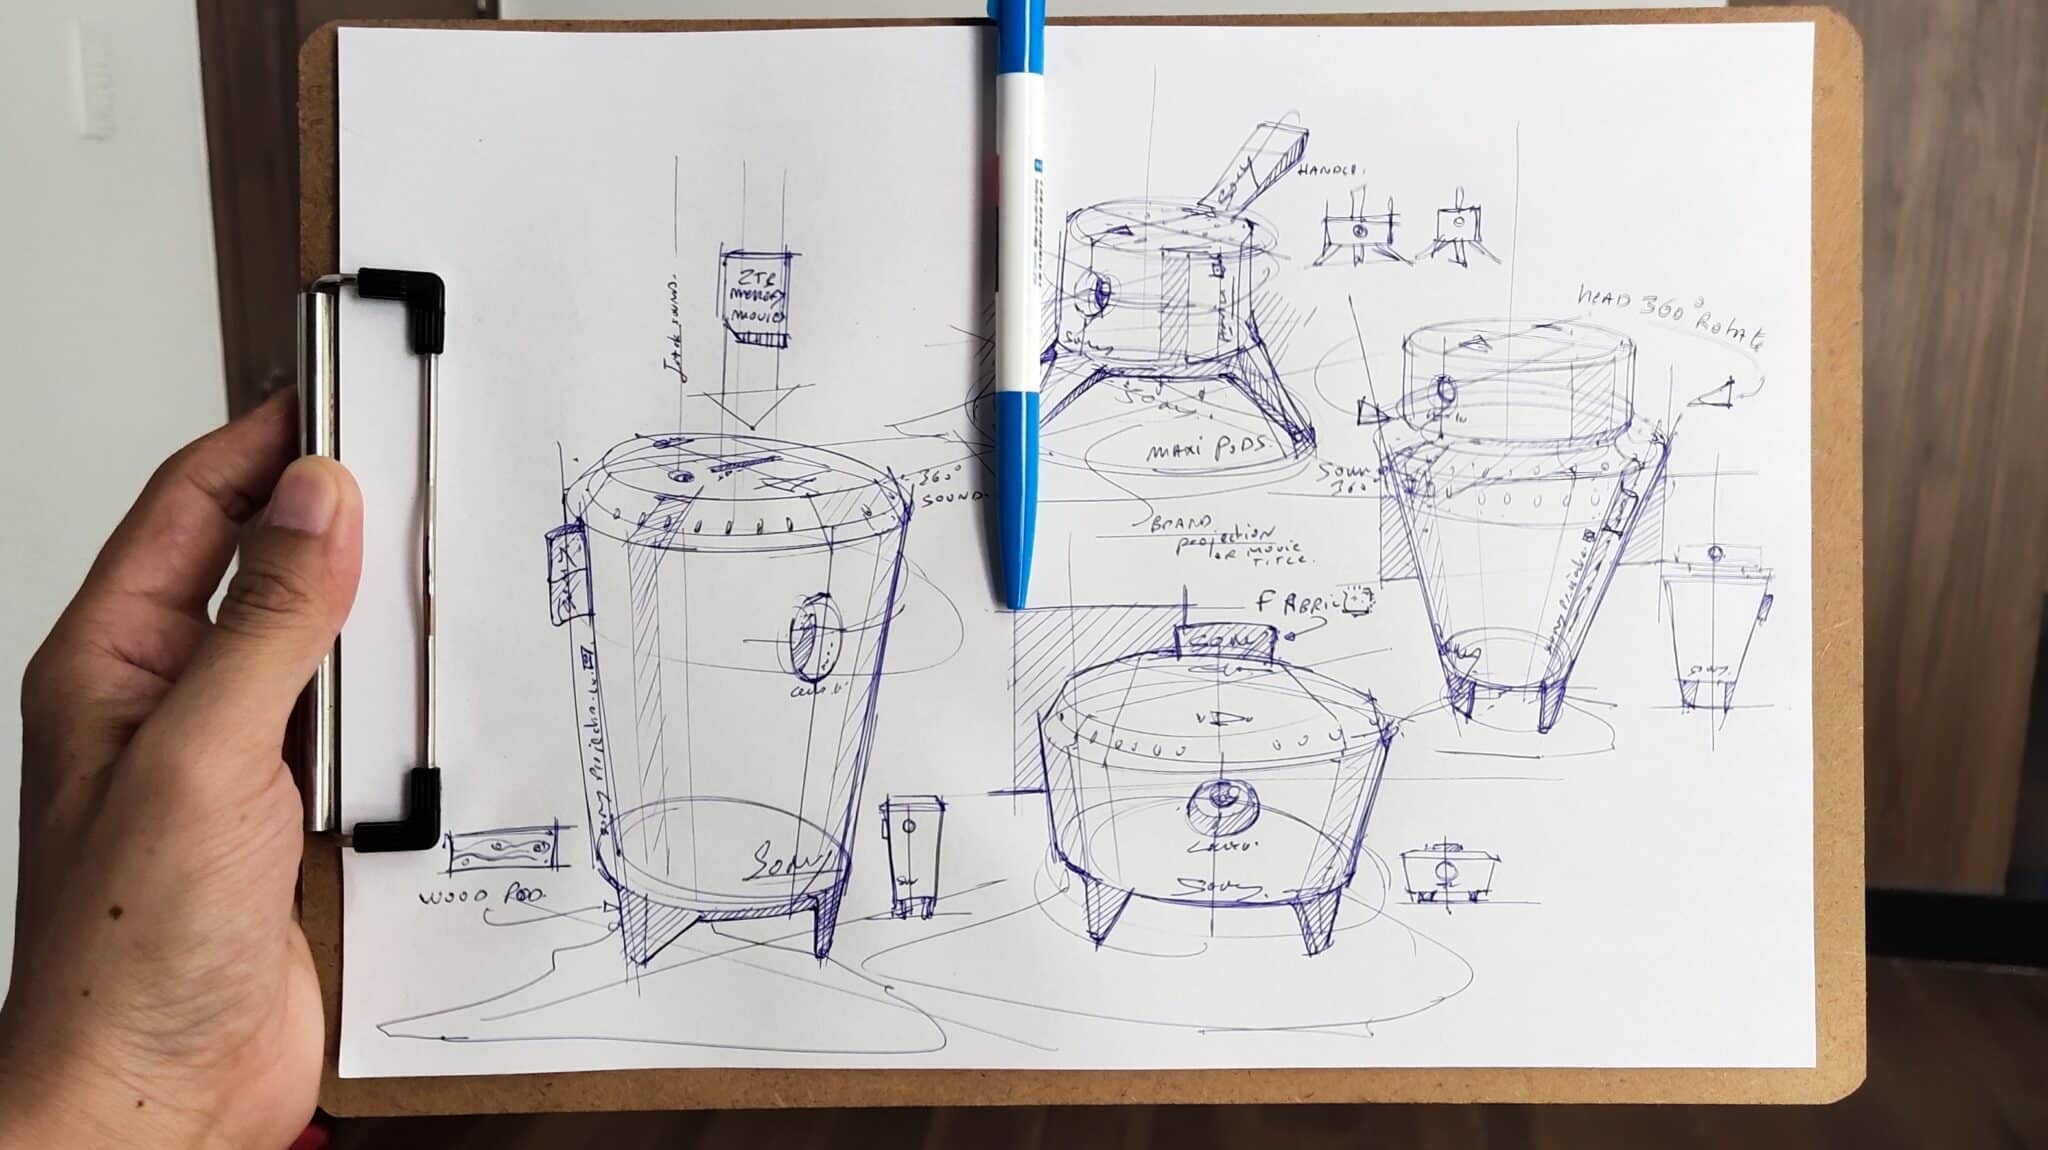 HANDLE.
SONY
HEAD 360° Rotate
2TB
MEMORY
MOVIE
Jack sound.
SONY
SONY.
MAXI PODS.
SOUND
360°
360°
SOUND.
BRAND
projection
OR MOVIE
TITLE.
FABRIC
SONY
SONY
SONY
Sony Projector
SONY
SONY.
WOOD POD.